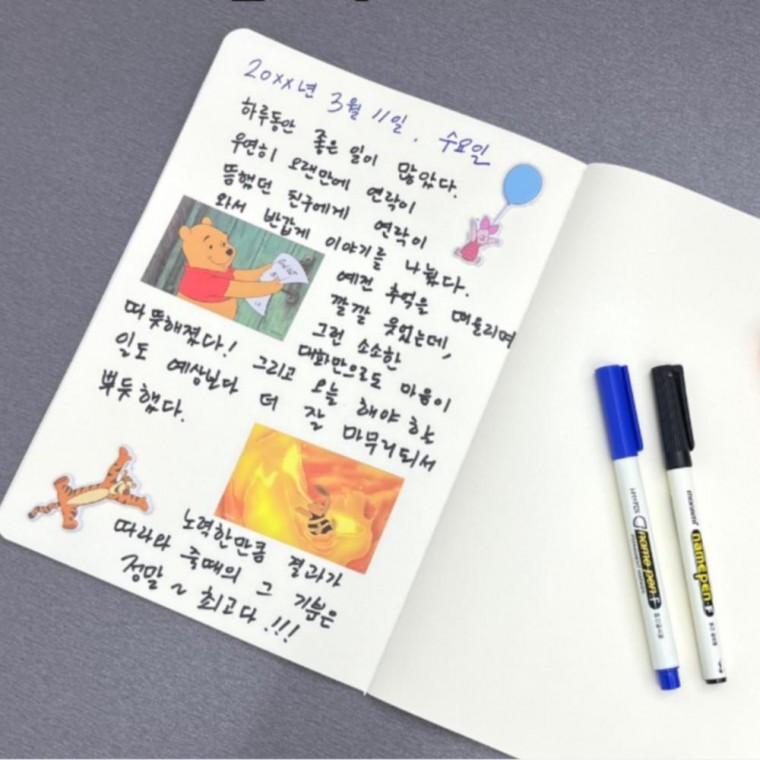 20xx년 3월 11일. 수요일
하루동안 좋은 일이 많았다.
우연히 오랜만에 연락이
뜸했던 친구에게 연락이
와서 반갑게 이야기를 나눴다.
예전 추억을 떠올리며
깔깔 웃었는데,
그런 소소한
대화만으로도 마음이
따뜻해졌다! 그리고 오늘 해야 하는
일도 예상보다 더 잘 마무리되서
뿌듯했다.
노력한만큼 결과가
따라와 줄때의 그 기분은
정말~ 최고다!!!
name pen F
monami
name pen F